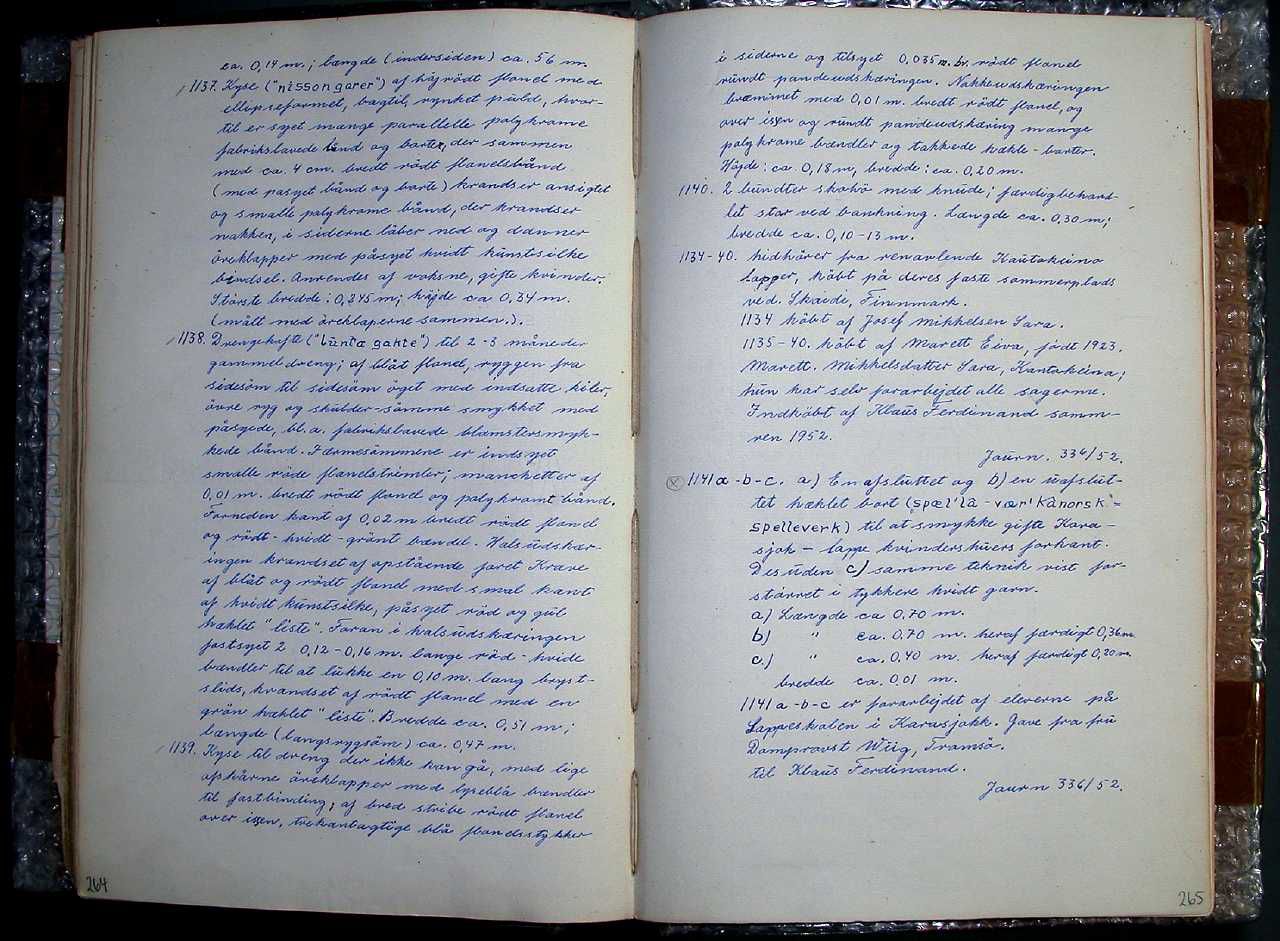 ca. 0,14 m.; længde (indersiden) ca. 56 m.
1137. Kyse ("nissongarer") af højrødt flonel med
ellipseformet, bagtil, rynket puld, hvor-
til er syet mange parallelle polykrome
fabrikslavede bånd og borter, der sammen
med ca. 4 cm. bredt rødt flonelsbånd
(med påsyet bånd og borte) krandser ansigtet
og smalle polykrome bånd, der krandser
nakken, i siderne løber ned og danner
øreklapper med påsyet hvidt kunstsilke
bindsel. Anvendes af voksne, gifte kvinder.
Største bredde: 0,245 m; højde ca 0,34 m.
(målt med øreklaperne sammen.).
1138. Drengekofte ("luntæ gakte") til 2-3 måneder
gammel dreng; af blåt flonel, ryggen fra
sidesöm til sidesöm øget med indsatte kiler,
øvre ryg og skulder-sømme smykket med
påsyede, bl.a. fabrikslavede blomstersmyk-
kede bånd. Færmesömmene er indsyet
smalle røde flonelstrimler; manchetter af
0,01 m. bredt rødt flonel og polykromt bånd.
Forneden kant af 0,02 m bredt rødt flonel
og rødt-hvidt-grønt bændel. Halsudskær-
ingen krandset af opstående foret Krave
af blåt og rødt flonel med smal kant
af hvidt kunstsilke, påsyet rød og gul
hæklet "liste". Foran i halsudskæringen
fastsyet 2 0,12-0,16 m. lange rød-hvide
bændler til at lukke en 0,10 m. lang bryst-
slids, krandset af rødt flonel med en
grøn hæklet "liste". Bredde ca. 0,51 m;
længde (langs rygsøm) ca. 0,47 m.
1139. Kyse til dreng der ikke kan gå, med lige
afskårne öreklapper med lyseblå bændler
til fastbinding; af bred stribe rødt flonel
over issen, trekantagtige blå flonelsstykker
264
i siderne og tilsyet 0,035 m. br. rødt flonel
rundt pandeudskæringen. Nakkeudskæringen
bræmmet med 0,01 m. bredt rødt flonel, og
over issen og rundt pandeudskæring mange
polykrome bændler og takkede hækle-borter.
Højde: ca. 0,18 m, bredde: ca. 0,20 m.
1140. 2 bundter skohø med knude; færdigbehand-
let star ved bankning. Længde ca. 0,30 m;
bredde ca. 0,10-13 m.
1134-40. hidhører fra renavlende Kautokeino
lapper, købt på deres faste sommerplads
ved. Skaidi, Finnmark.
1134 købt af Josef Mikkelsen Sara.
1135-40. købt af Marett Eira, født 1923.
Marett. Mikkelsdatter Sara, Kautokeino;
hun har selv forarbejdet alle sagerne.
Indkøbt af Klaus Ferdinand somm-
ren 1952.
Journ. 336/52.
1141 a-b-c. a) En afsluttet og b) en uafslut-
tet hæklet bort (spæl'lâ-vær'kânorsk=
spelleverk) til at smykke gifte Kara-
sjok-lappe kvindershuers forkant.
Desuden c) samme teknik vist for-
størret i tykkere hvidt garn.
a) Længde ca 0.70 m.
b) " ca. 0.70 m. heraf færdigt 0,36 m
c.) " ca. 0.40 m. heraf færdigt 0,20 m.
bredde ca. 0.01 m.
1141 a-b-c er forarbejdet af eleverne på
Lappeskolen i Karasjokk. Gave fra fru
Domprovst Wiig, Tromsø.
til Klaus Ferdinand.
Journ 336/52.
265